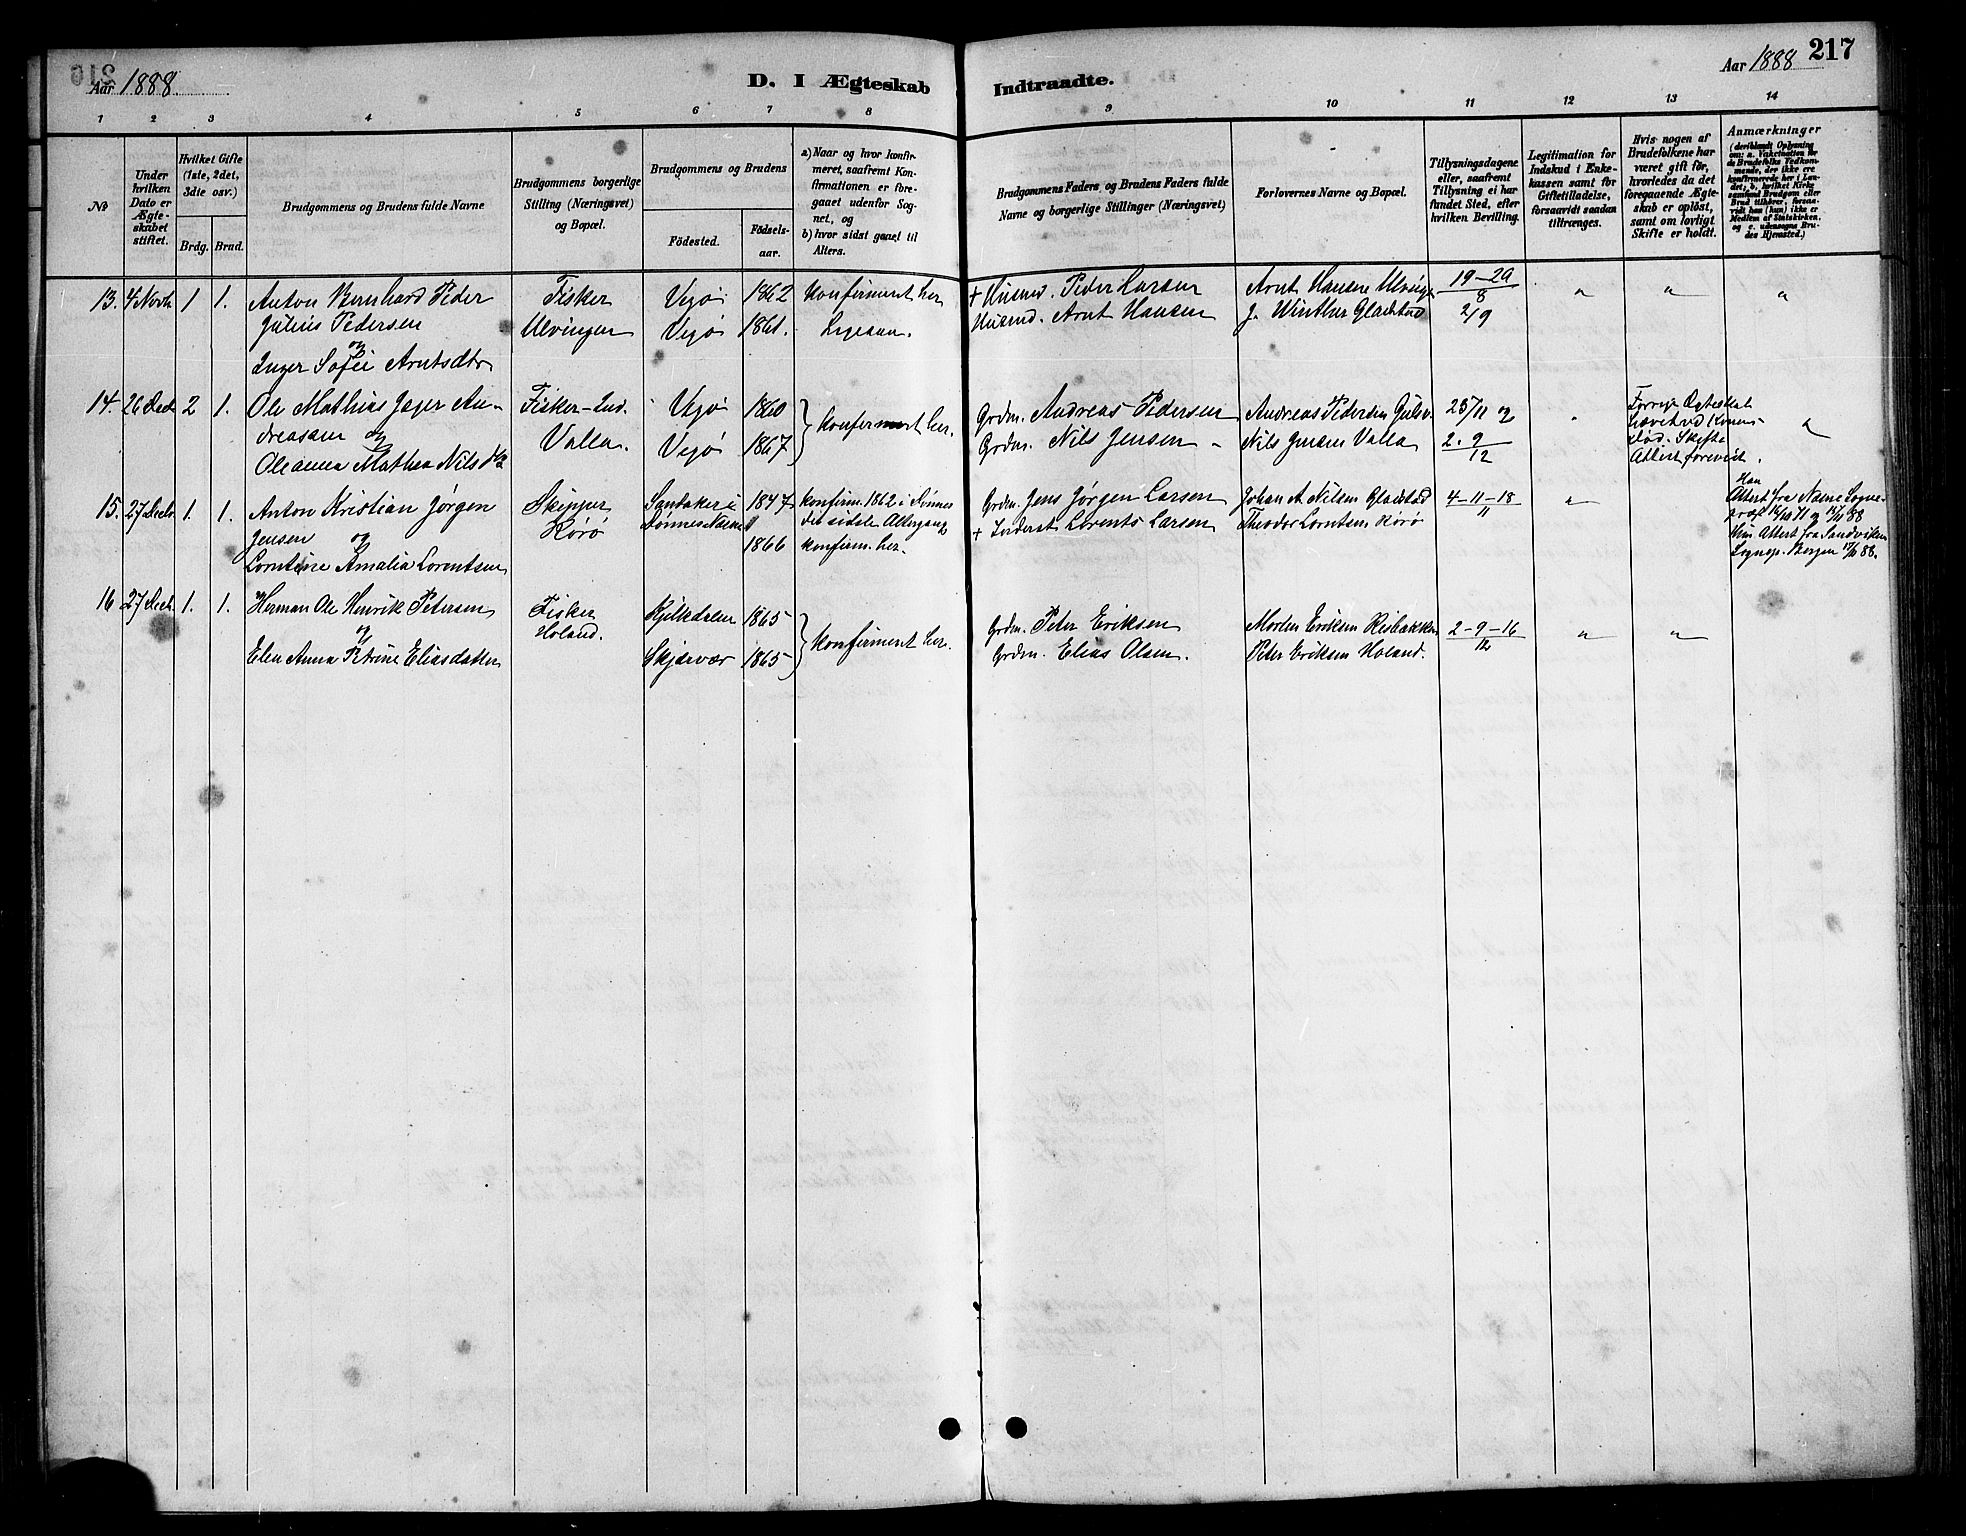 Aar 1888.
D. I Ægteskab
Indtraadte.
Aar 1888
217
1 2 3 4 5 6 7 8 9 10 11 12 13 14
No
Under hvilken Dato er Ægteskabet stiftet.
Hvilket Gifte (1ste, 2det, 3die osv.)
Brdg. Brud.
Brudgommens og Brudens fulde Navne
Brudgommens borgerlige Stilling (Næringsvei) og Bopæl.
Brudgommens og Brudens
Födested.
Födselsaar.
a) Naar og hvor konfirmeret, saafremt Konfirmationen er foregaaet udenfor Sognet, og
b) hvor sidst gaaet til Alters.
Brudgommens Faders, og Brudens Faders fulde Navne og borgerlige Stillinger (Næringsvei)
Forlovernes Navne og Bopæl.
Tillysningsdagene eller, saafremt Tillysning ei har fundet Sted, efter hvilken Bevilling.
Legitimation for Indskud i Enkekassen samt for Giftetilladelse, forsaavidt saadan tiltrænges.
Hvis nogen af Brudefolkene har været gift för, hvorledes da det foregaaende Ægteskab er oplöst, samt om lovligt Skifte er holdt.
Anmærkninger
(deriblandt Oplysning om: a. Vaksination for de Brudefolks Vedkommende, der ikke ere konfirmerede her i Landet; b, hvilket Kirkesamfund Brudgom eller Brud tilhörer, forsaavidt han (hun) ikke er Medlem af Statskirken, og c. udensogns Brudes Hjemsted.)
13. 4 Novb. 1 1. Anton Bernhard Peder Fisker Vegö 1862 Konfirmeret her + Husmd. Peder Larsen Arnt Hansen Ulvinge 19-2a/8 " " "
Julius Pedersen Ulvingen Vegö 1861. Ligesaa. Husmd. Arnt Hansen J. Winther Gladstad 2/9
og
Inger Sofie Arntsdtr
14. 26 Decb 2 1. Ole Mathias Jager An- Fisker-Ind. Vegö 1860 Konfirmeret her. Grdm. Andreas Pedersen Andreas Pedersen Gulsv. 25/11 og " Forrige Ægteskab
dreasen og Valla. Vegö 1867 Grdm. Nils Jensen Nils Jensen Valla 2-9/12 hævet ved Konens
Oleanna Mathea Nilsdtr död. Skifte
Attest forevist.
15. 27 Decb. 1. 1. Anton Kristian Jörgen Skipper Sandaker i 1847 konfirm. 1862 i Rönnes Grdm. Jens Jörgen Larsen Johan A Nilsen Gladstad 4-11-18/11 " Han
Jensen og Rörö 1866 det sidste Altergang + Inderst Lorents Larsen Theodor Lorntsen Rörö Attest fra
Lorntine Amalia Lorentsen konfirm. her. Hun Attest fra Sandviken
Sognep. Bergen
16. 27 Decb. 1. 1. Herman Ole Henrik Petersen Fisker Kjilkdalen 1865 Konfirmeret her. Grdm. Peter Eriksen Morten Eriksen Risbakken 2-9-16/12 " "
og Holand. Skjærvær 1865 Grdm. Elias Olsen. Peter Eriksen Holand.
Elen Anna Petrine Eliasdatter